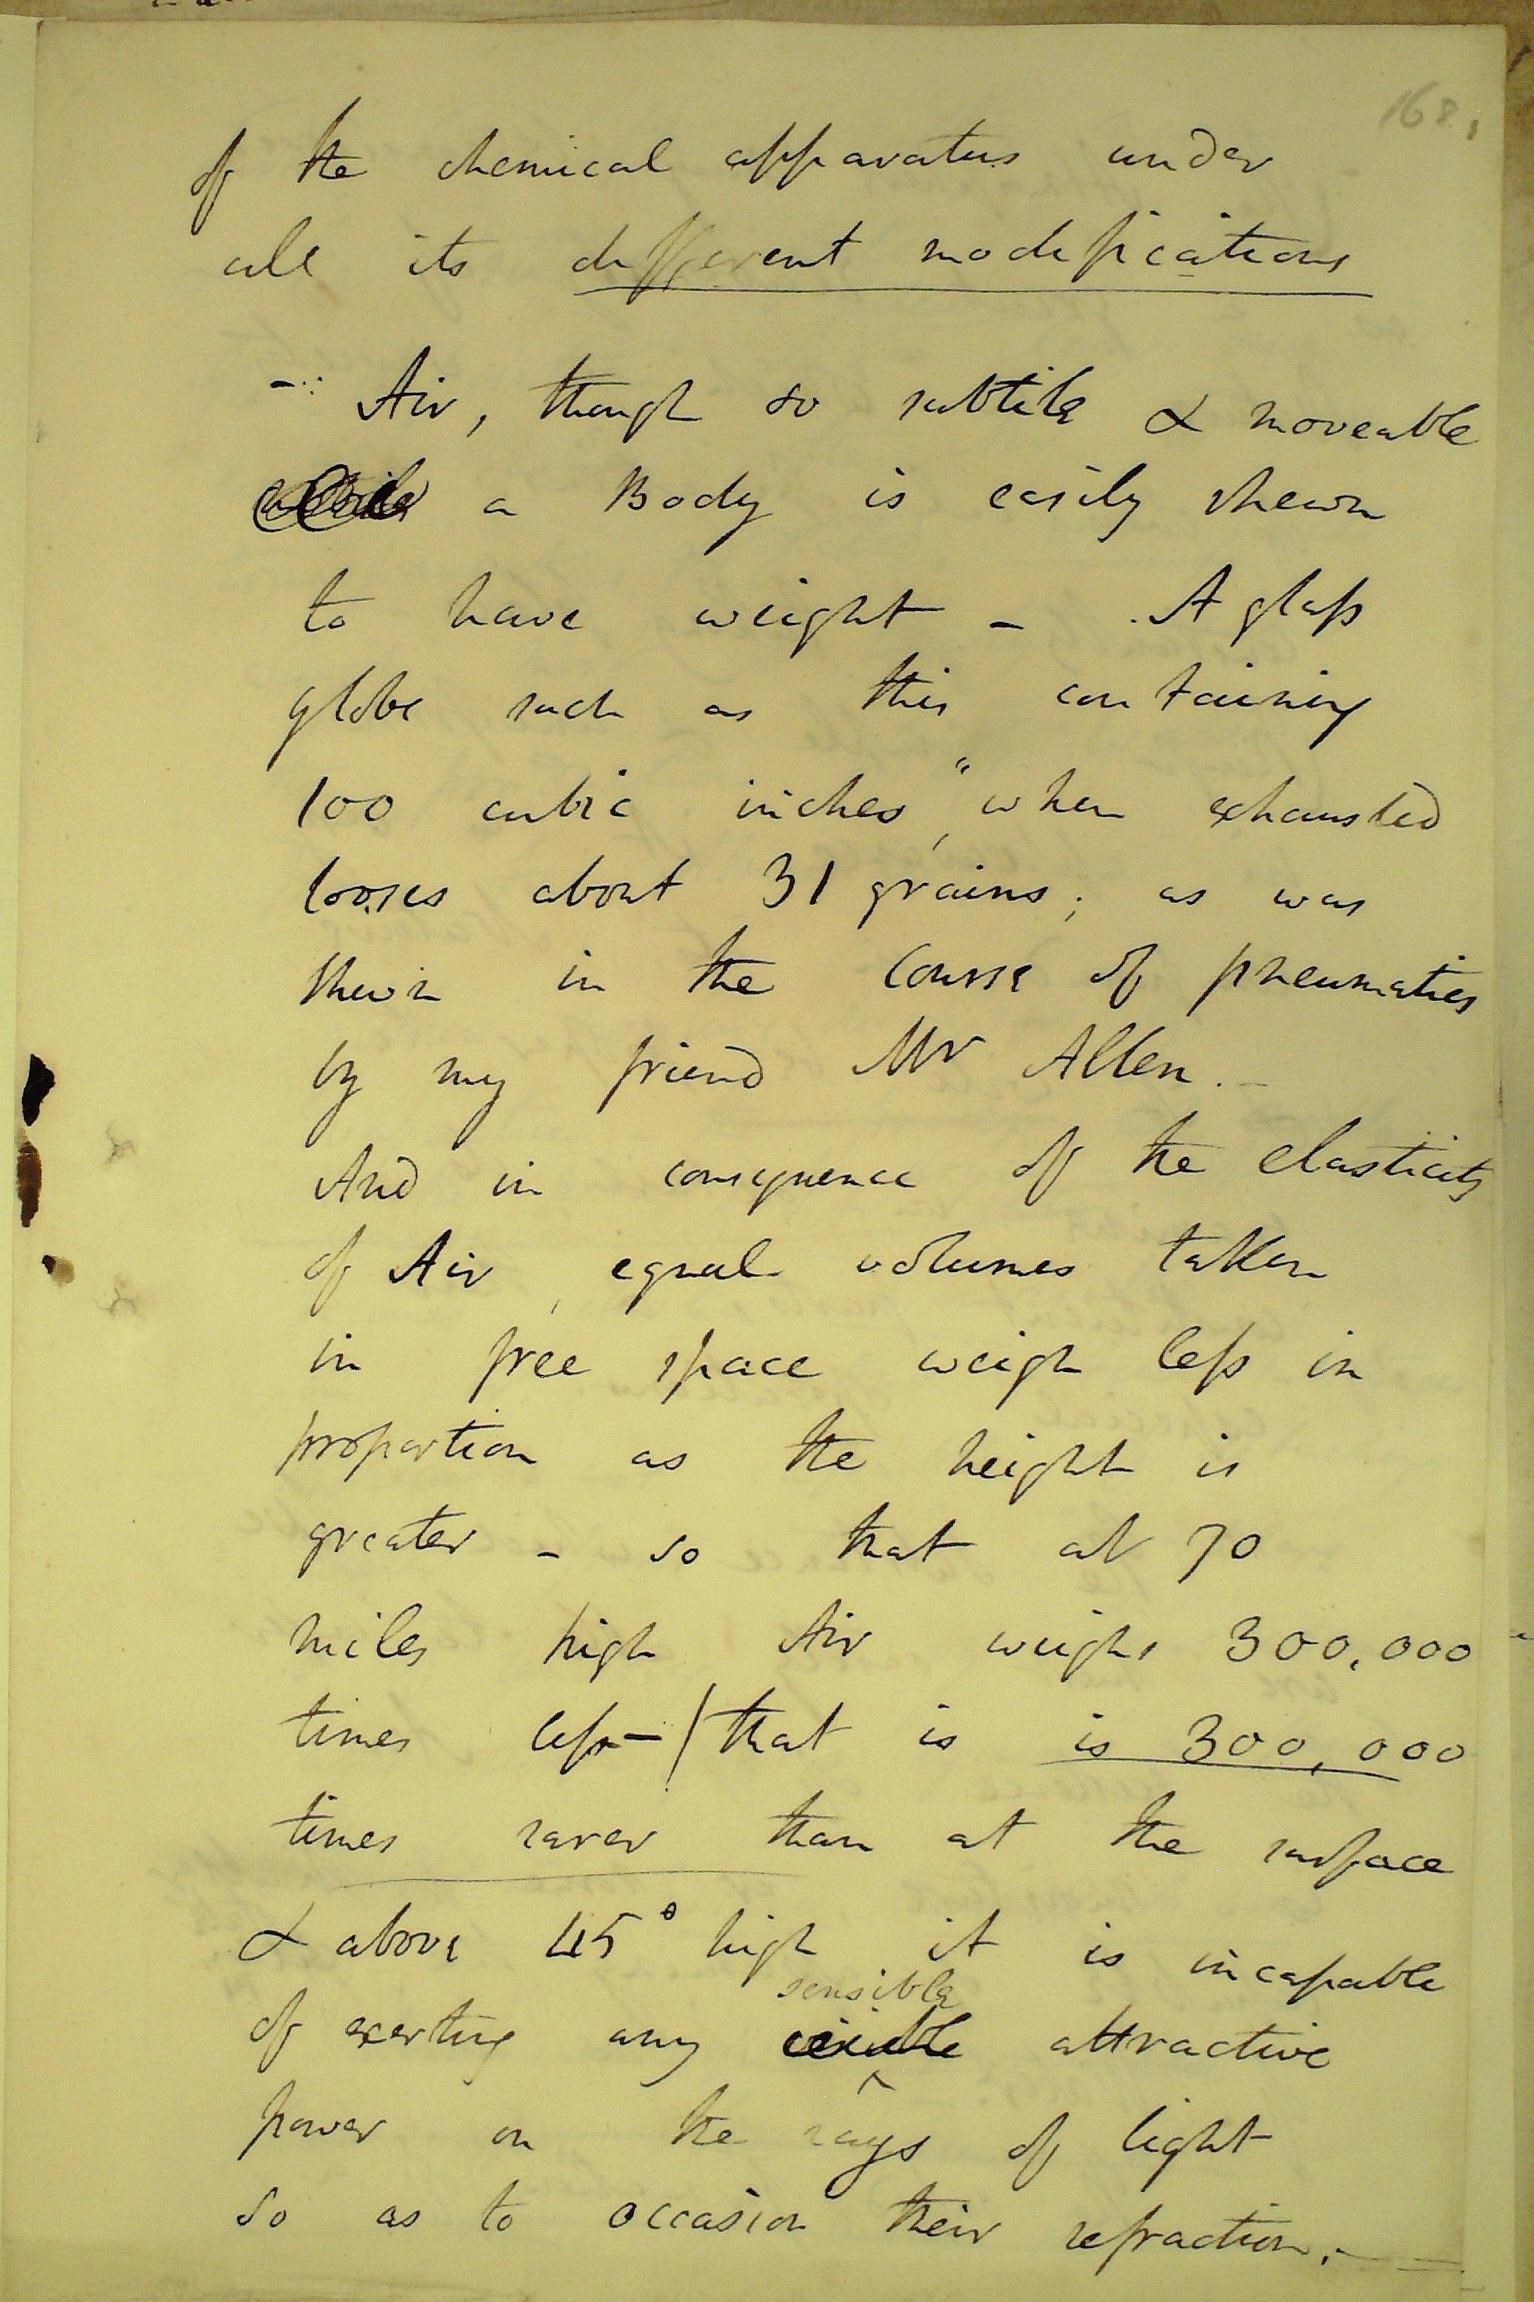 168.
of the chemical apparatus under
all its different modifications
- Air, though so subtile & moveable
a Body is easily shewn
to have weight - A glaſs
globe such as this containing
100 cubic inches, "when exhausted
looses about 31 grains; as was
shewn in the Course of pneumatics
by my friend Mr Allen. -
And in consequence of the elasticity
of Air, equal volumes taken
in free space weigh leſs in
proportion as the height is
greater - so that at 70
miles high Air weighs 300,000
times leſs - / that is is 300,000
times rarer than at the surface
& above 45° high it is incapable
sensible
of exerting any attractive
power on the rays of light
so as to occasion their refraction. -